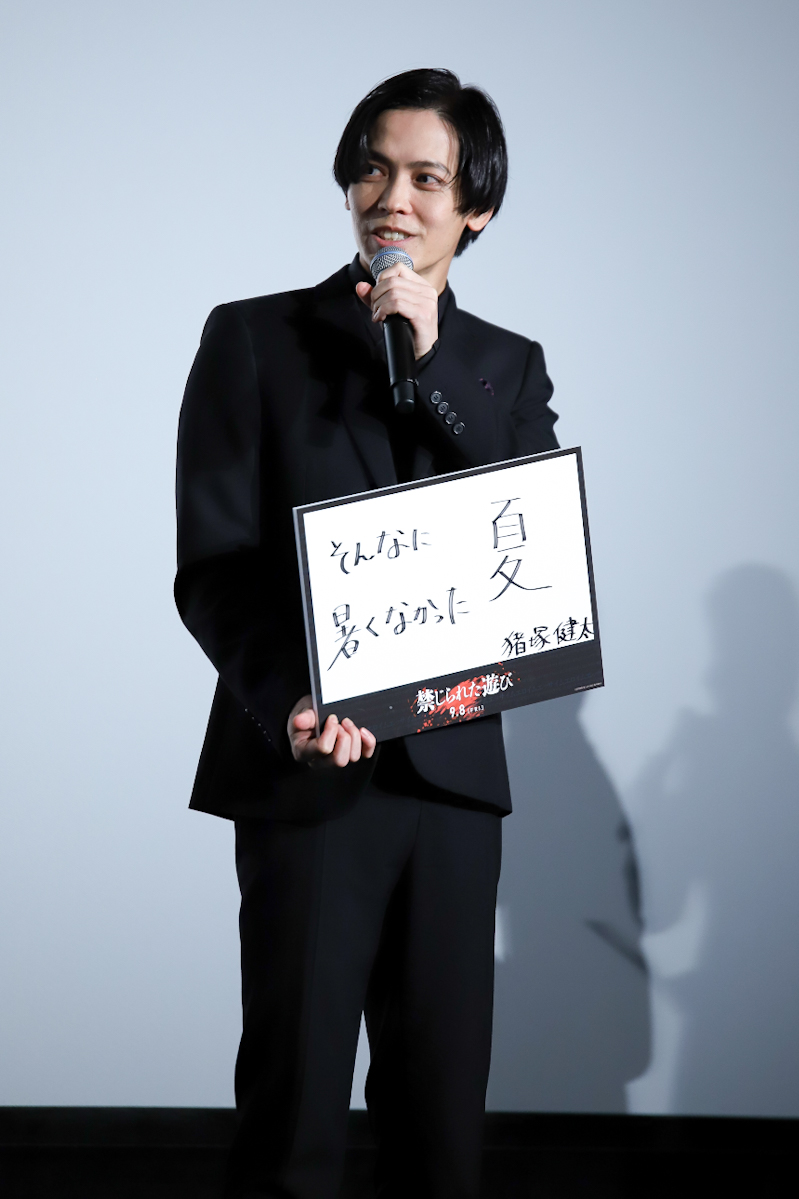 そんなに
暑くなかった
夏
猪塚健太
禁じられた遊び
9.8 [FRI.]